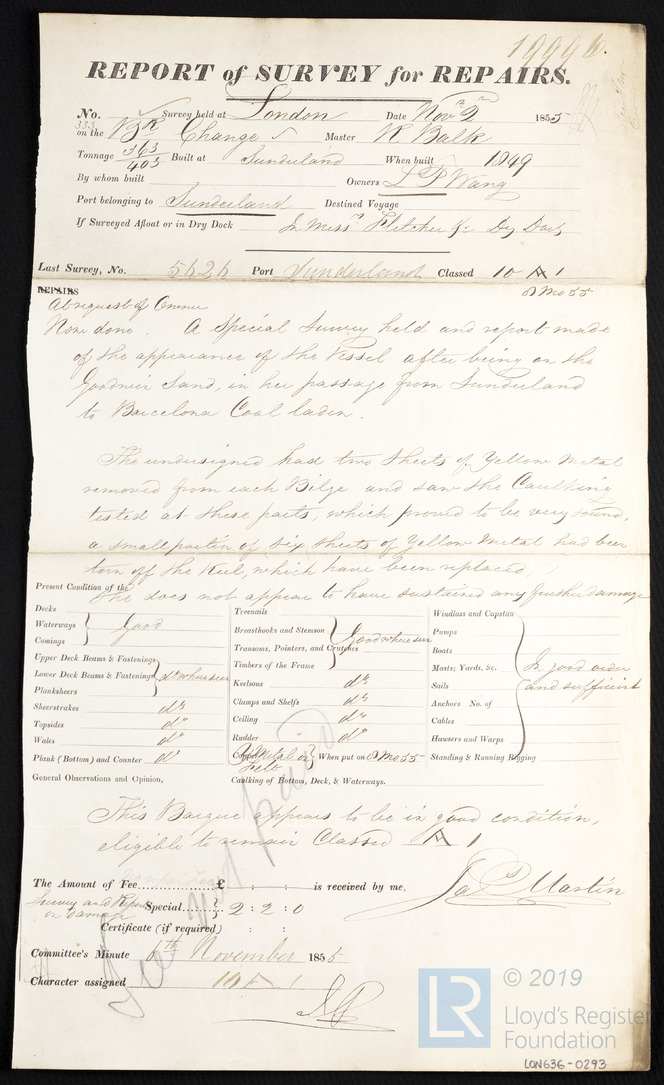 19996.
REPORT of SURVEY for REPAIRS.
No. Survey held at London Date Nov 2nd 1855
333
on the Bk Change Master R Balk
Tonnage 363/405 Built at Sunderland When built 1849
By whom built Owners L P Wang
Port belonging to Sunderland Destined Voyage
If Surveyed Afloat or in Dry Dock In Messrs Fletcher &c Dry Dock
Last Survey, No. 5626 Port Sunderland Classed 10 A 1
REPAIRS 8 Mo 55
At request of Owner
None done. A Special Survey held and report made
of the appearance of the Vessel after being on the
Goodwin Sand, in her passage from Sunderland
to Barcelona Coal laden.
The undersigned had two Sheets of Yellow Metal
removed from each Bilge and saw the Caulking
tested at these parts, which proved to be very sound,
a small portion of six sheets of Yellow Metal had been
torn off the Keel, which have been replaced.
She does not appear to have sustained any further damage
Present Condition of the
Decks
Waterways } Good
Comings
Upper Deck Beams & Fastenings
Lower Deck Beams & Fastenings } do where seen
Planksheers
Sheerstrakes do
Topsides do
Wales do
Plank (Bottom) and Counter do
General Observations and Opinion,
Treenails
Breasthooks and Stemson } Good where seen
Transoms, Pointers, and Crutches
Timbers of the Frame
Keelsons do
Clamps and Shelfs do
Ceiling do
Rudder do
Y Metal on Felt } When put on 8 Mo 55
Caulking of Bottom, Deck, & Waterways.
Windlass and Capstan
Pumps
Boats
Masts, Yards, &c. } In good order
Sails and sufficient
Anchors No. of
Cables
Hawsers and Warps
Standing & Running Rigging
This Barque appears to be in good condition,
eligible to remain Classed A 1
Fee not paid
The Amount of Fee £ : : is received by me,
Survey and Report on damage Special 2 : 2 : 0
Jas Martin
Certificate (if required) : :
Committee's Minute 6th November 1855
Character assigned 10 A 1
© 2019
LR Lloyd's Register
Foundation
LON636-0293